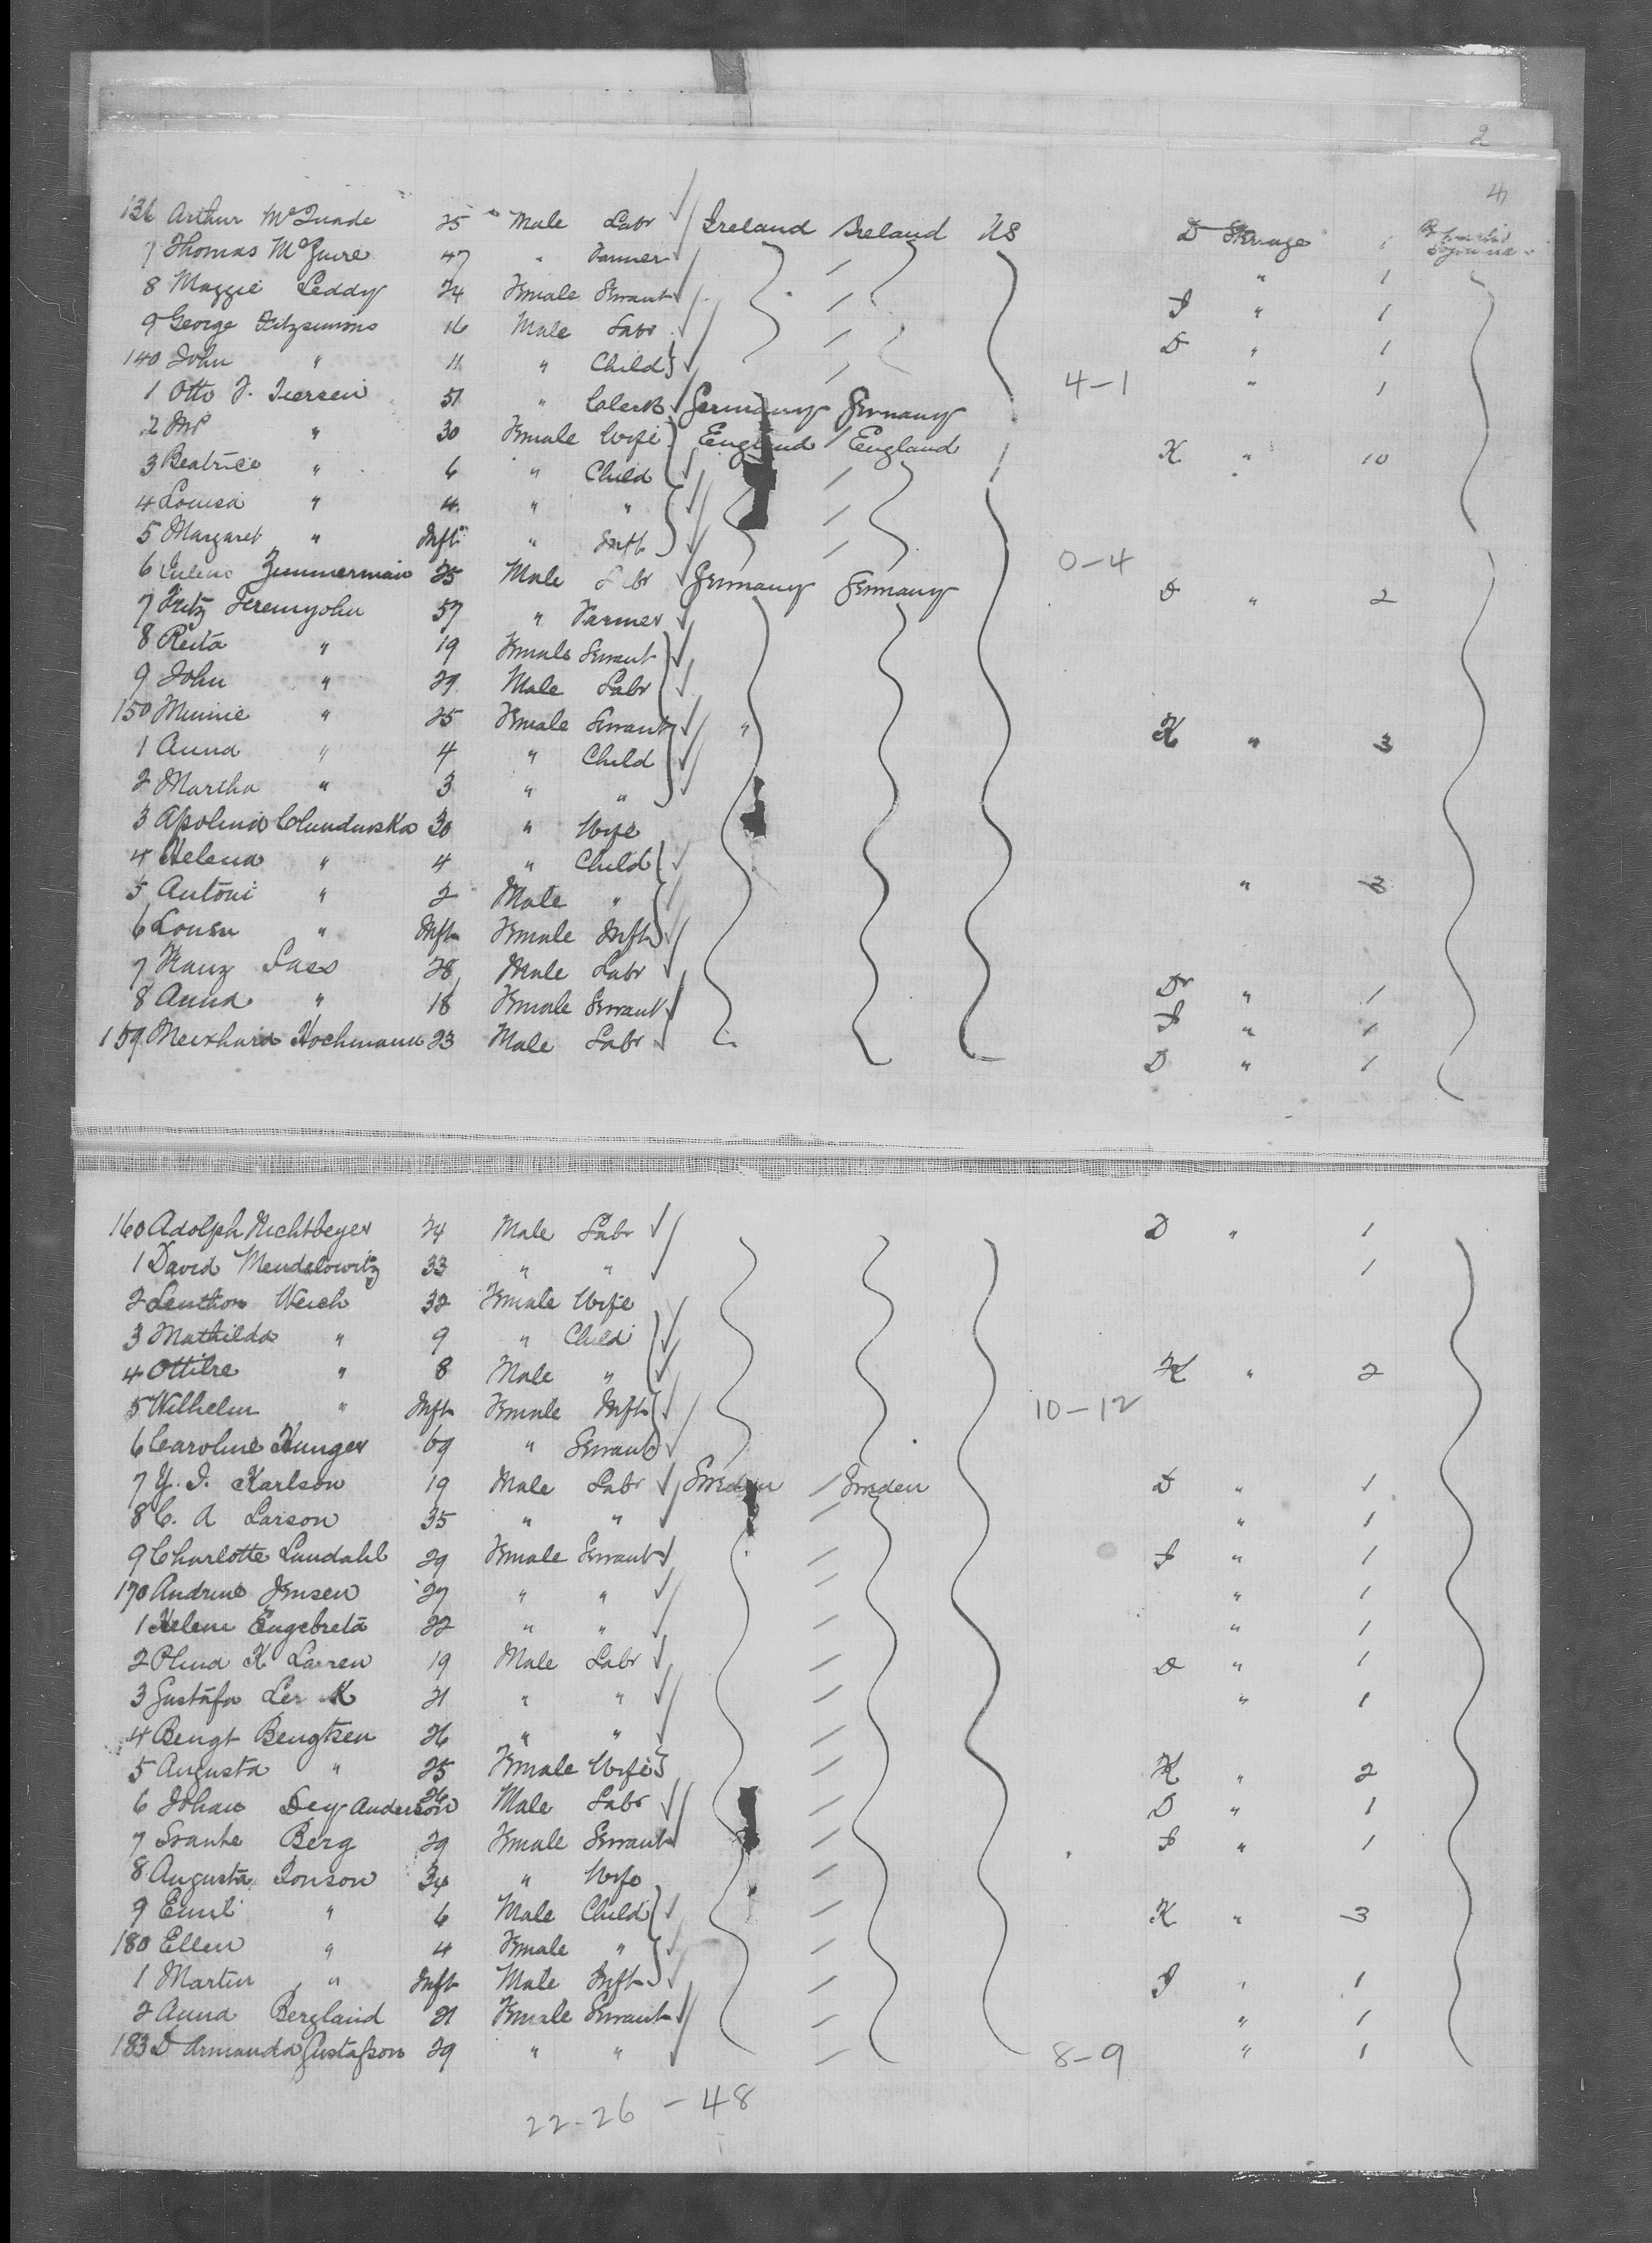 2
4
136 Arthur McQuade 25 " Male Labr Ireland Ireland US D Steerage 1
7 Thomas McGuire 47 " Farmer " 1
8 Maggie Leddy 24 Female Servant S " 1
9 George Fitzsimons 16 Male Labr D " 1
140 John " 11 " Child 4-1 " 1
1 Otto F. Iversen 51 " Clerk Germany Germany
2 Mrs " 30 Female Wife England England K " 10
3 Beatrice " 6 " Child "
4 Louisa " 4 " "
5 Margaret " Inft " Inft 0-4
6 Zimmerman 25 Male Labr Germany Germany D " 2
7 Fritz Jeremyohn 57 " Farmer
8 Reita " 19 Female Servant
9 John " 29 Male Labr
150 Minnie " 25 Female Servant " K " 3
1 Anna " 4 " Child
2 Martha " 3 " "
3 Apolina 30 " Wife
4 Helena " 4 " Child
5 Antoni " 2 Male " " 3
6 " Inft Female Inft
7 Franz Sass 28 Male Labr Dr " 1
8 Anna " 18 Female Servant S " 1
159 Hochmann 23 Male Labr D " 1
160 Adolph Nichtbeyer 24 Male Labr D " 1
1 David Mendelowitz 33 " " 1
2 Weich 32 Female Wife
3 Mathilda " 9 " Child
4 Ottilre " 8 Male " K " 2
5 Wilhelm " Inft Female Inft 10-12
6 Caroline Hunger 69 " Servant
7 Y. I. Karlson 19 Male Labr Sweden Sweden D " 1
8 C. A Larson 35 " " " 1
9 Charlotte Lundahl 29 Female Servant S " 1
170 Andrine Jensen 27 " " " 1
1 Helene Engebreta 22 " " " 1
2 K Larren 19 Male Labr D " 1
3 Gustafa 21 " " " 1
4 Bengt Bengtsen 26 " "
5 Augusta " 25 Female Wife K " 2
6 Johan Dey Anderson 26 Male Labr D " 1
7 Svante Berg 29 Female Servant S " 1
8 Augusta Jonson 34 " Wife
9 Emil " 6 Male Child K " 3
180 Ellen " 4 Female "
1 Martin " Inft Male Inft S " 1
2 Anna Bergland 21 Female Servant " 1
183 D Armanda Gustafson 29 " " 8-9 " 1
22-26 - 48